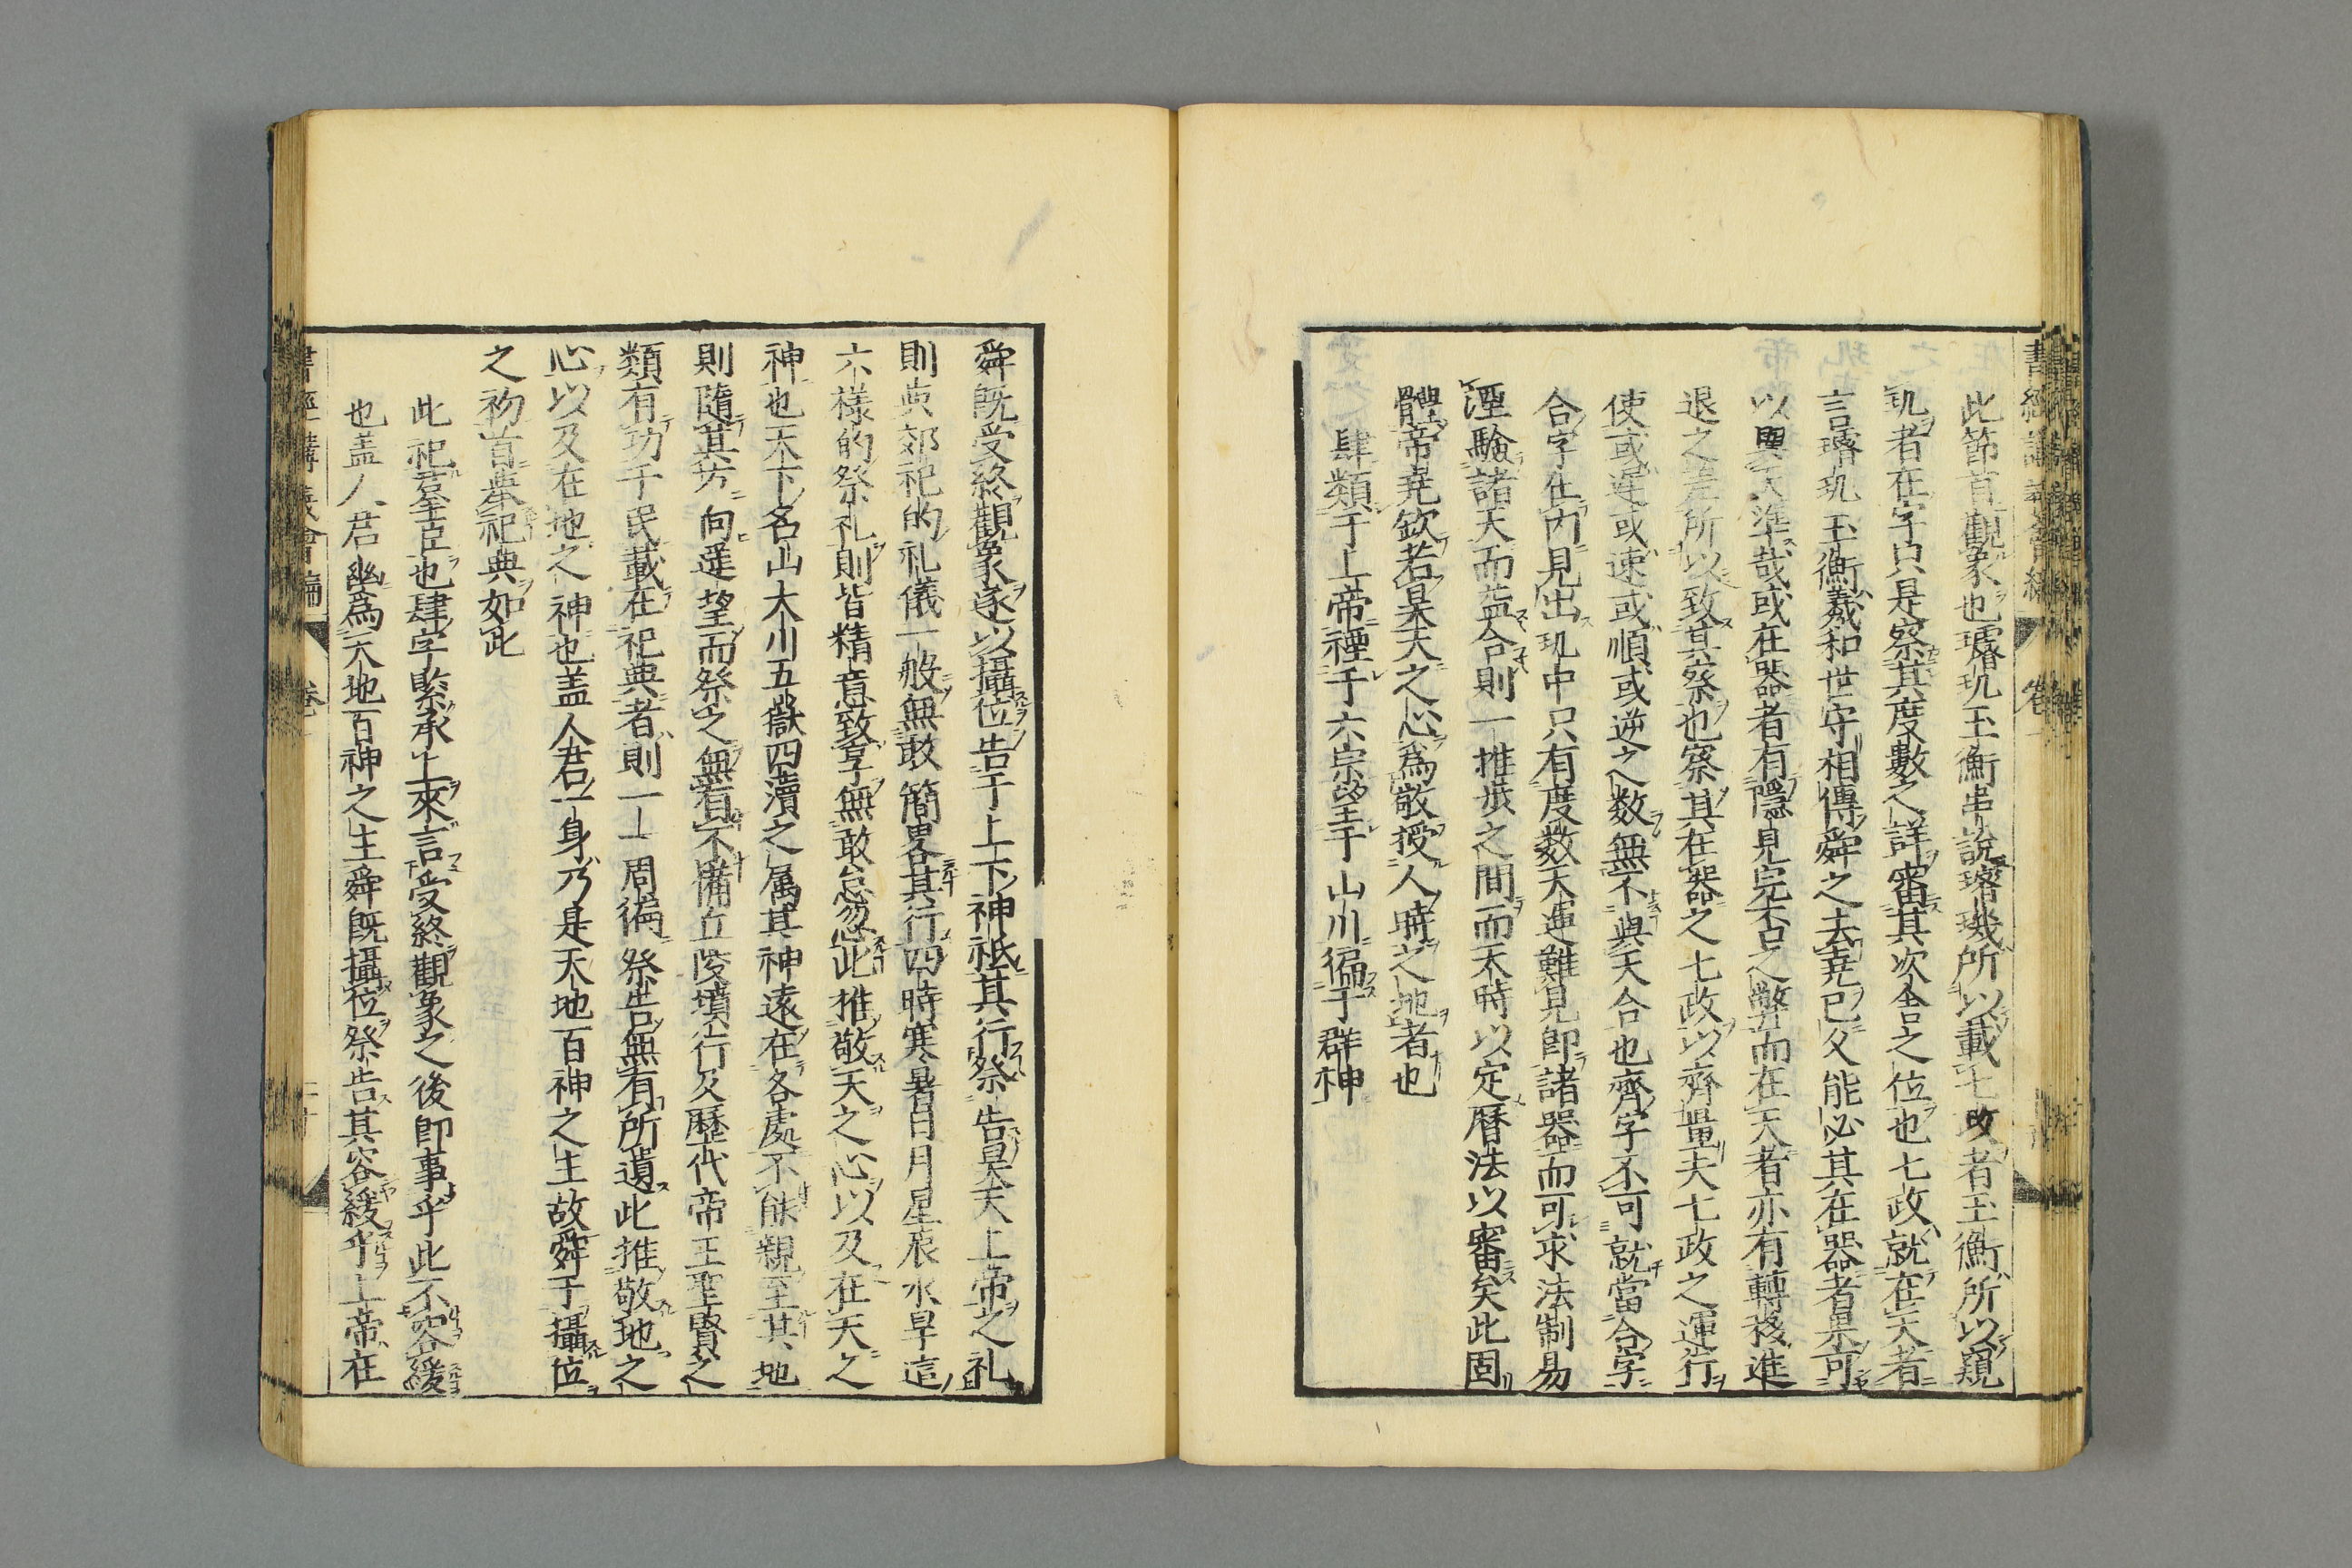 此節首觀象也璿玑玉衡串說璿璣所以載七政者玉衡所以窺
玑者在字只是察其度數之詳審其次舍之位也七政就在天者
言璿玑玉衡羲和世守相傳舜之去堯已久能必其在器者果可
以與天準哉或在器者有隱見完否之弊而在天者亦有轉移進
退之差所以致其察也察其在器之七政以齊量夫七政之運行
使或遲或速或順或逆之数無不與天合也齊字不可就當合字
合字在内見出玑中只有度数天運難見即諸器而可求法制易
湮驗諸天而益合則一推步之間而天時以定曆法以審矣此固
體帝堯欽若昊天之心為敬授人時之地者也
肆類于上帝禋于六宗望于山川徧于群神
舜既受終觀象遂以攝位告于上下神祇其行祭告昊天上帝之礼
則與郊祀的礼儀一般無敢簡畧其行四時寒暑日月星辰水旱這
六樣的祭礼則皆精意致享無敢怠忽此推敬天之心以及在天之
神也天下名山大川五嶽四瀆之属其神遠在各處不能親至其地
則隨其方向遥望而祭之無有不備丘陵墳衍及歷代帝王聖賢之
類有功于民載在祀典者則一一周徧祭告無有所遺此推敬地之
心以及在地之神也盖人君一身乃是天地百神之主故舜于攝位
之初首舉祀典如此
此祀羣臣也肆字緊承上來言受終觀象之後即事乎此不容緩
也盖人君幽為天地百神之主舜既攝位祭告其容緩乎上帝在
書經講義會編
卷一